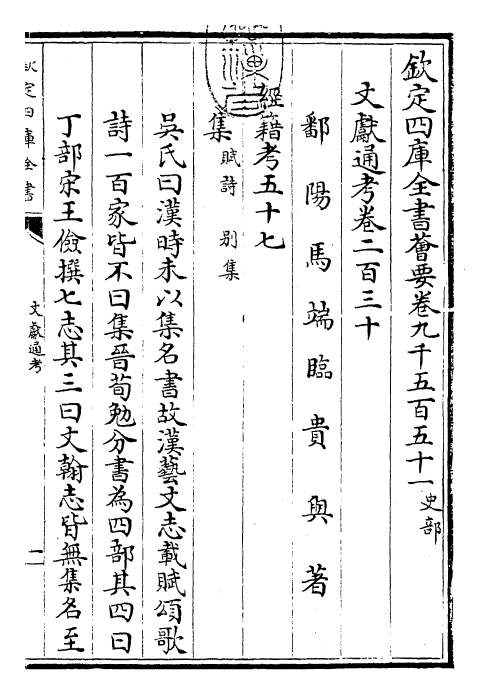 欽定四庫全書薈要卷九千五百五十一史部
文獻通考卷二百三十
鄱陽馬端臨貴與著
經籍考五十七
集賦詩 别集
吳氏曰漢時未以集名書故漢藝文志載賦頌歌
詩一百家皆不曰集晉荀勉分書為四部其四曰
丁部宋王儉撰七志其三曰文翰志皆無集名至
欽定四庫全書
文獻通考